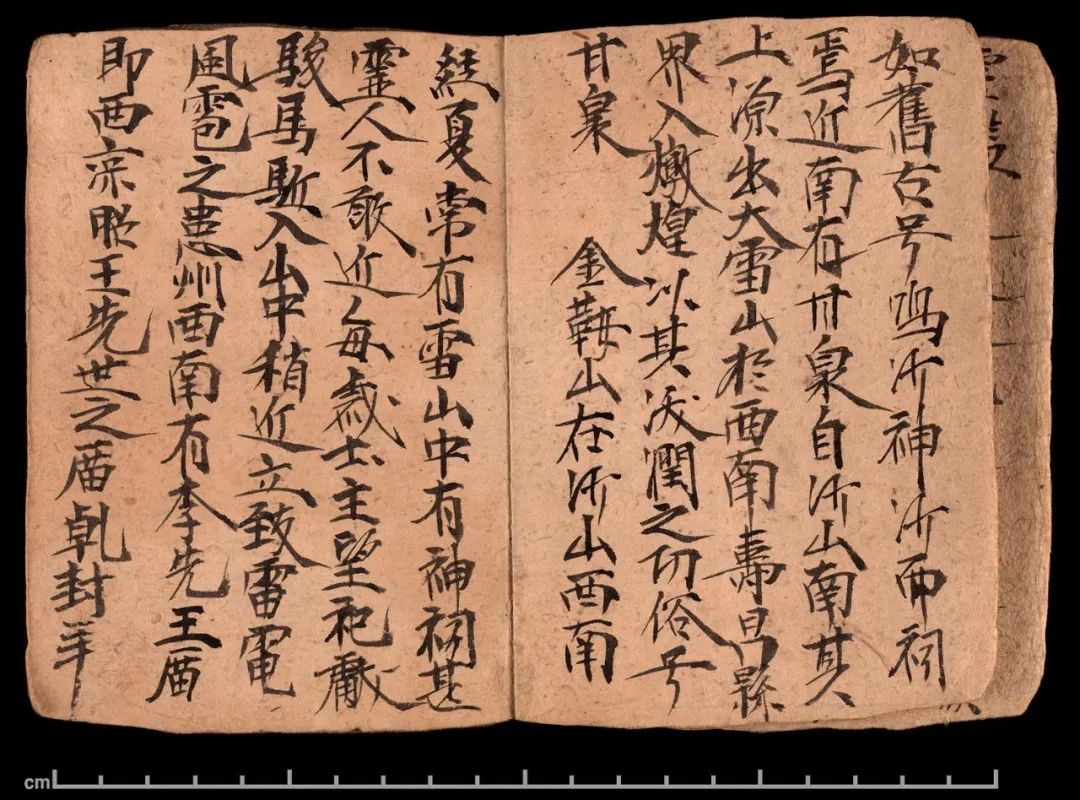 如舊古号鳴沙神沙而祠
焉近南有甘泉自沙山南其
上源出大雪山於西南壽昌縣
界入燉煌以其沃潤之功俗号
甘泉 金鞍山在沙山西南
經夏常有雪山中有神祠甚
靈人不敢近每歲土主望祀獻
駿馬駈入山中稍近立致雷電
風雹之患州西南有李先王廟
即西涼昭王先世之廟乹封年